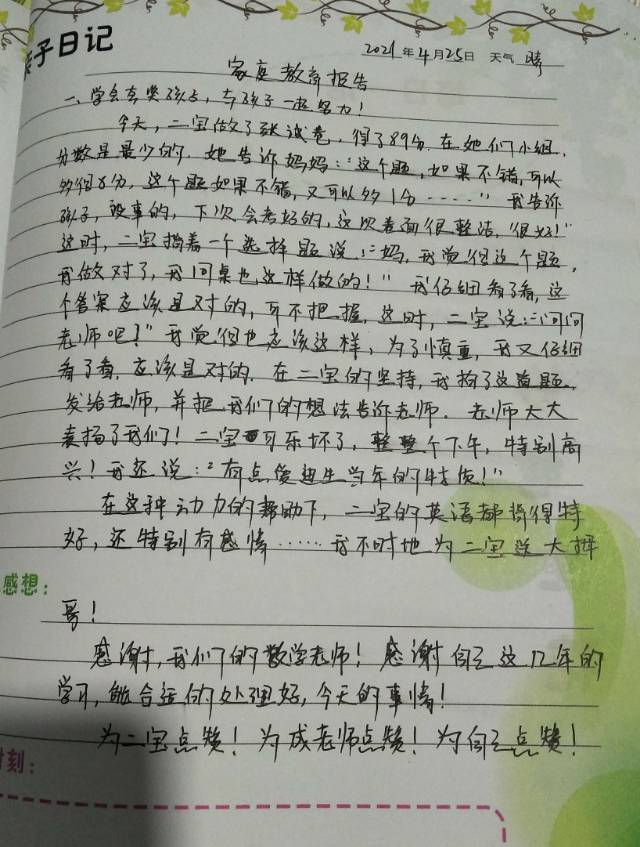 亲子日记
2021年4月25日 天气 晴
家庭教育报告
一、学会夸奖孩子,与孩子一起努力!
今天,二宝做了张试卷,得了89分,在她们小组,
分数是最少的,她告诉妈妈:“这个题,如果不错,可以
多得8分,这个题如果不错,又可以多1分……”我告诉
孩子,没事的,下次会考好的,这次卷面很整洁,很好!”
这时,二宝指着一个选择题说:“妈,我觉得这个题,
我做对了,我同桌也这样做的!”我仔细看了看,这
个答案应该是对的,可不把握,这时,二宝说:“问问
老师吧?”我觉得也应该这样,为了慎重,我又仔细
看了看,应该是对的,在二宝的坚持,我拍了这道题,
发给老师,并把我们的想法告诉老师.老师大大
表扬了我们!二宝可乐坏了,整整个下午,特别高
兴!我还说:“有点爱迪生当年的特质!”
在这种动力的帮助下,二宝的英语都背得特
好,还特别有感情……我不时地为二宝送大拇
感想:
哥!
感谢,我们的数学老师!感谢自己这几年的
学习,能合适的处理好,今天的事情!
为二宝点赞!为成老师点赞!为自己点赞!
时刻: